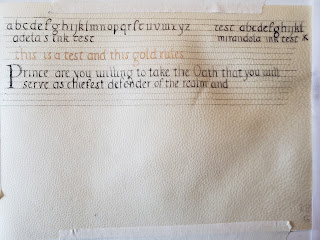 abcdefghijklmnopqrstuvwxyz test abcdefghijkl
adela's ink test mirandola ink test x
this is a test and this gold rules
Prince are you willing to take the Oath that you will
serve as chiefest defender of the realm and